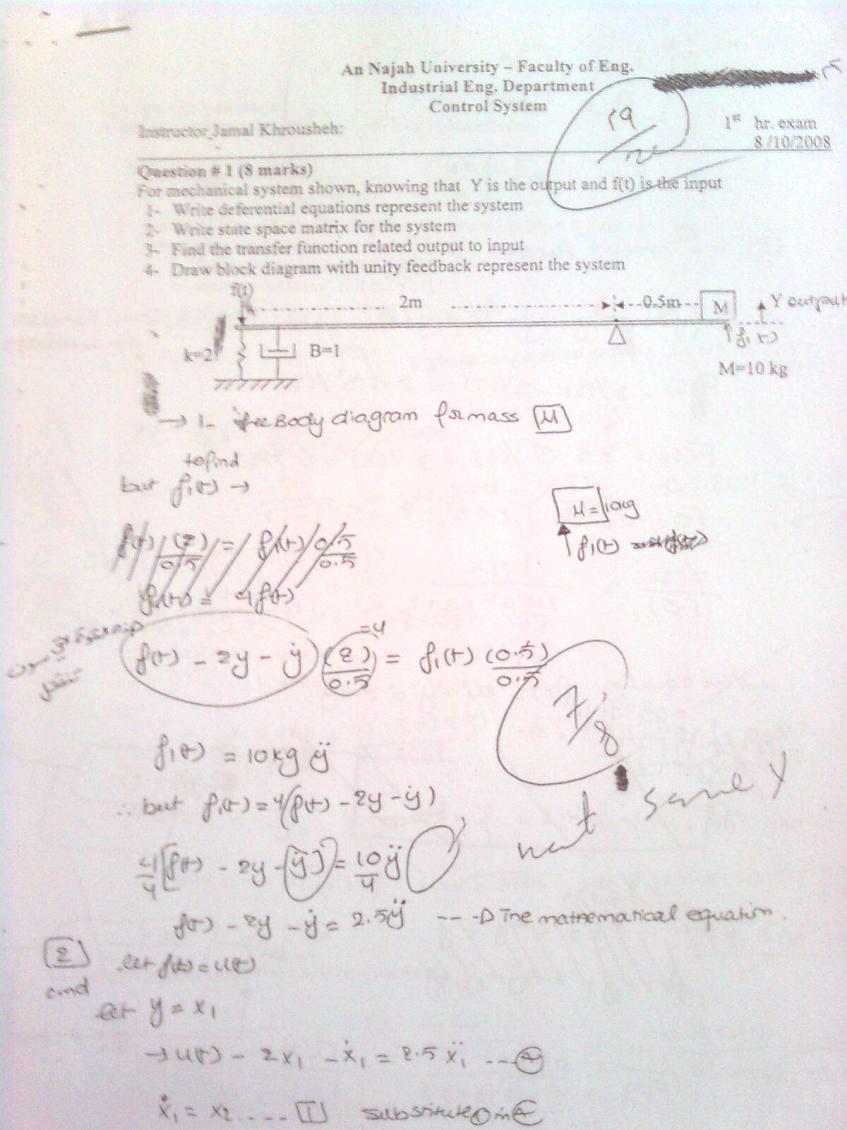 An Najah University – Faculty of Eng.
Industrial Eng. Department
Control System
19
Instructor Jamal Khrousheh:
1st hr. exam
8 /10/2008
Question # 1 (8 marks)
For mechanical system shown, knowing that Y is the output and f(t) is the input
1- Write deferential equations represent the system
2- Write state space matrix for the system
3- Find the transfer function related output to input
4- Draw block diagram with unity feedback represent the system
f(t)
2m
0.5m
M
Y output
k=2
B=1
f1(t)
M=10 kg
→ 1- free Body diagram for mass M
to find
but f1(t) →
M=10kg
f1(t)
f(t) (2)/0.5 = f1(t) 0.5/0.5
f1(t) = 4f(t)
f(t) - 2y - ẏ (2)/0.5 =4 = f1(t) (0.5)/0.5
7/8
f1(t) = 10kg ÿ
not same y
∴ but f1(t) = 4(f(t) - 2y - ẏ)
4/4 [f(t) - 2y - ẏ] = 10/4 ÿ
f(t) - 2y - ẏ = 2.5ÿ ---> The mathematical equation.
2
let f(t) = u(t)
and
let y = x1
→ u(t) - 2x1 - ẋ1 = 2.5 ẍ1 ---
ẋ1 = x2 .... 1 substitute 1 in